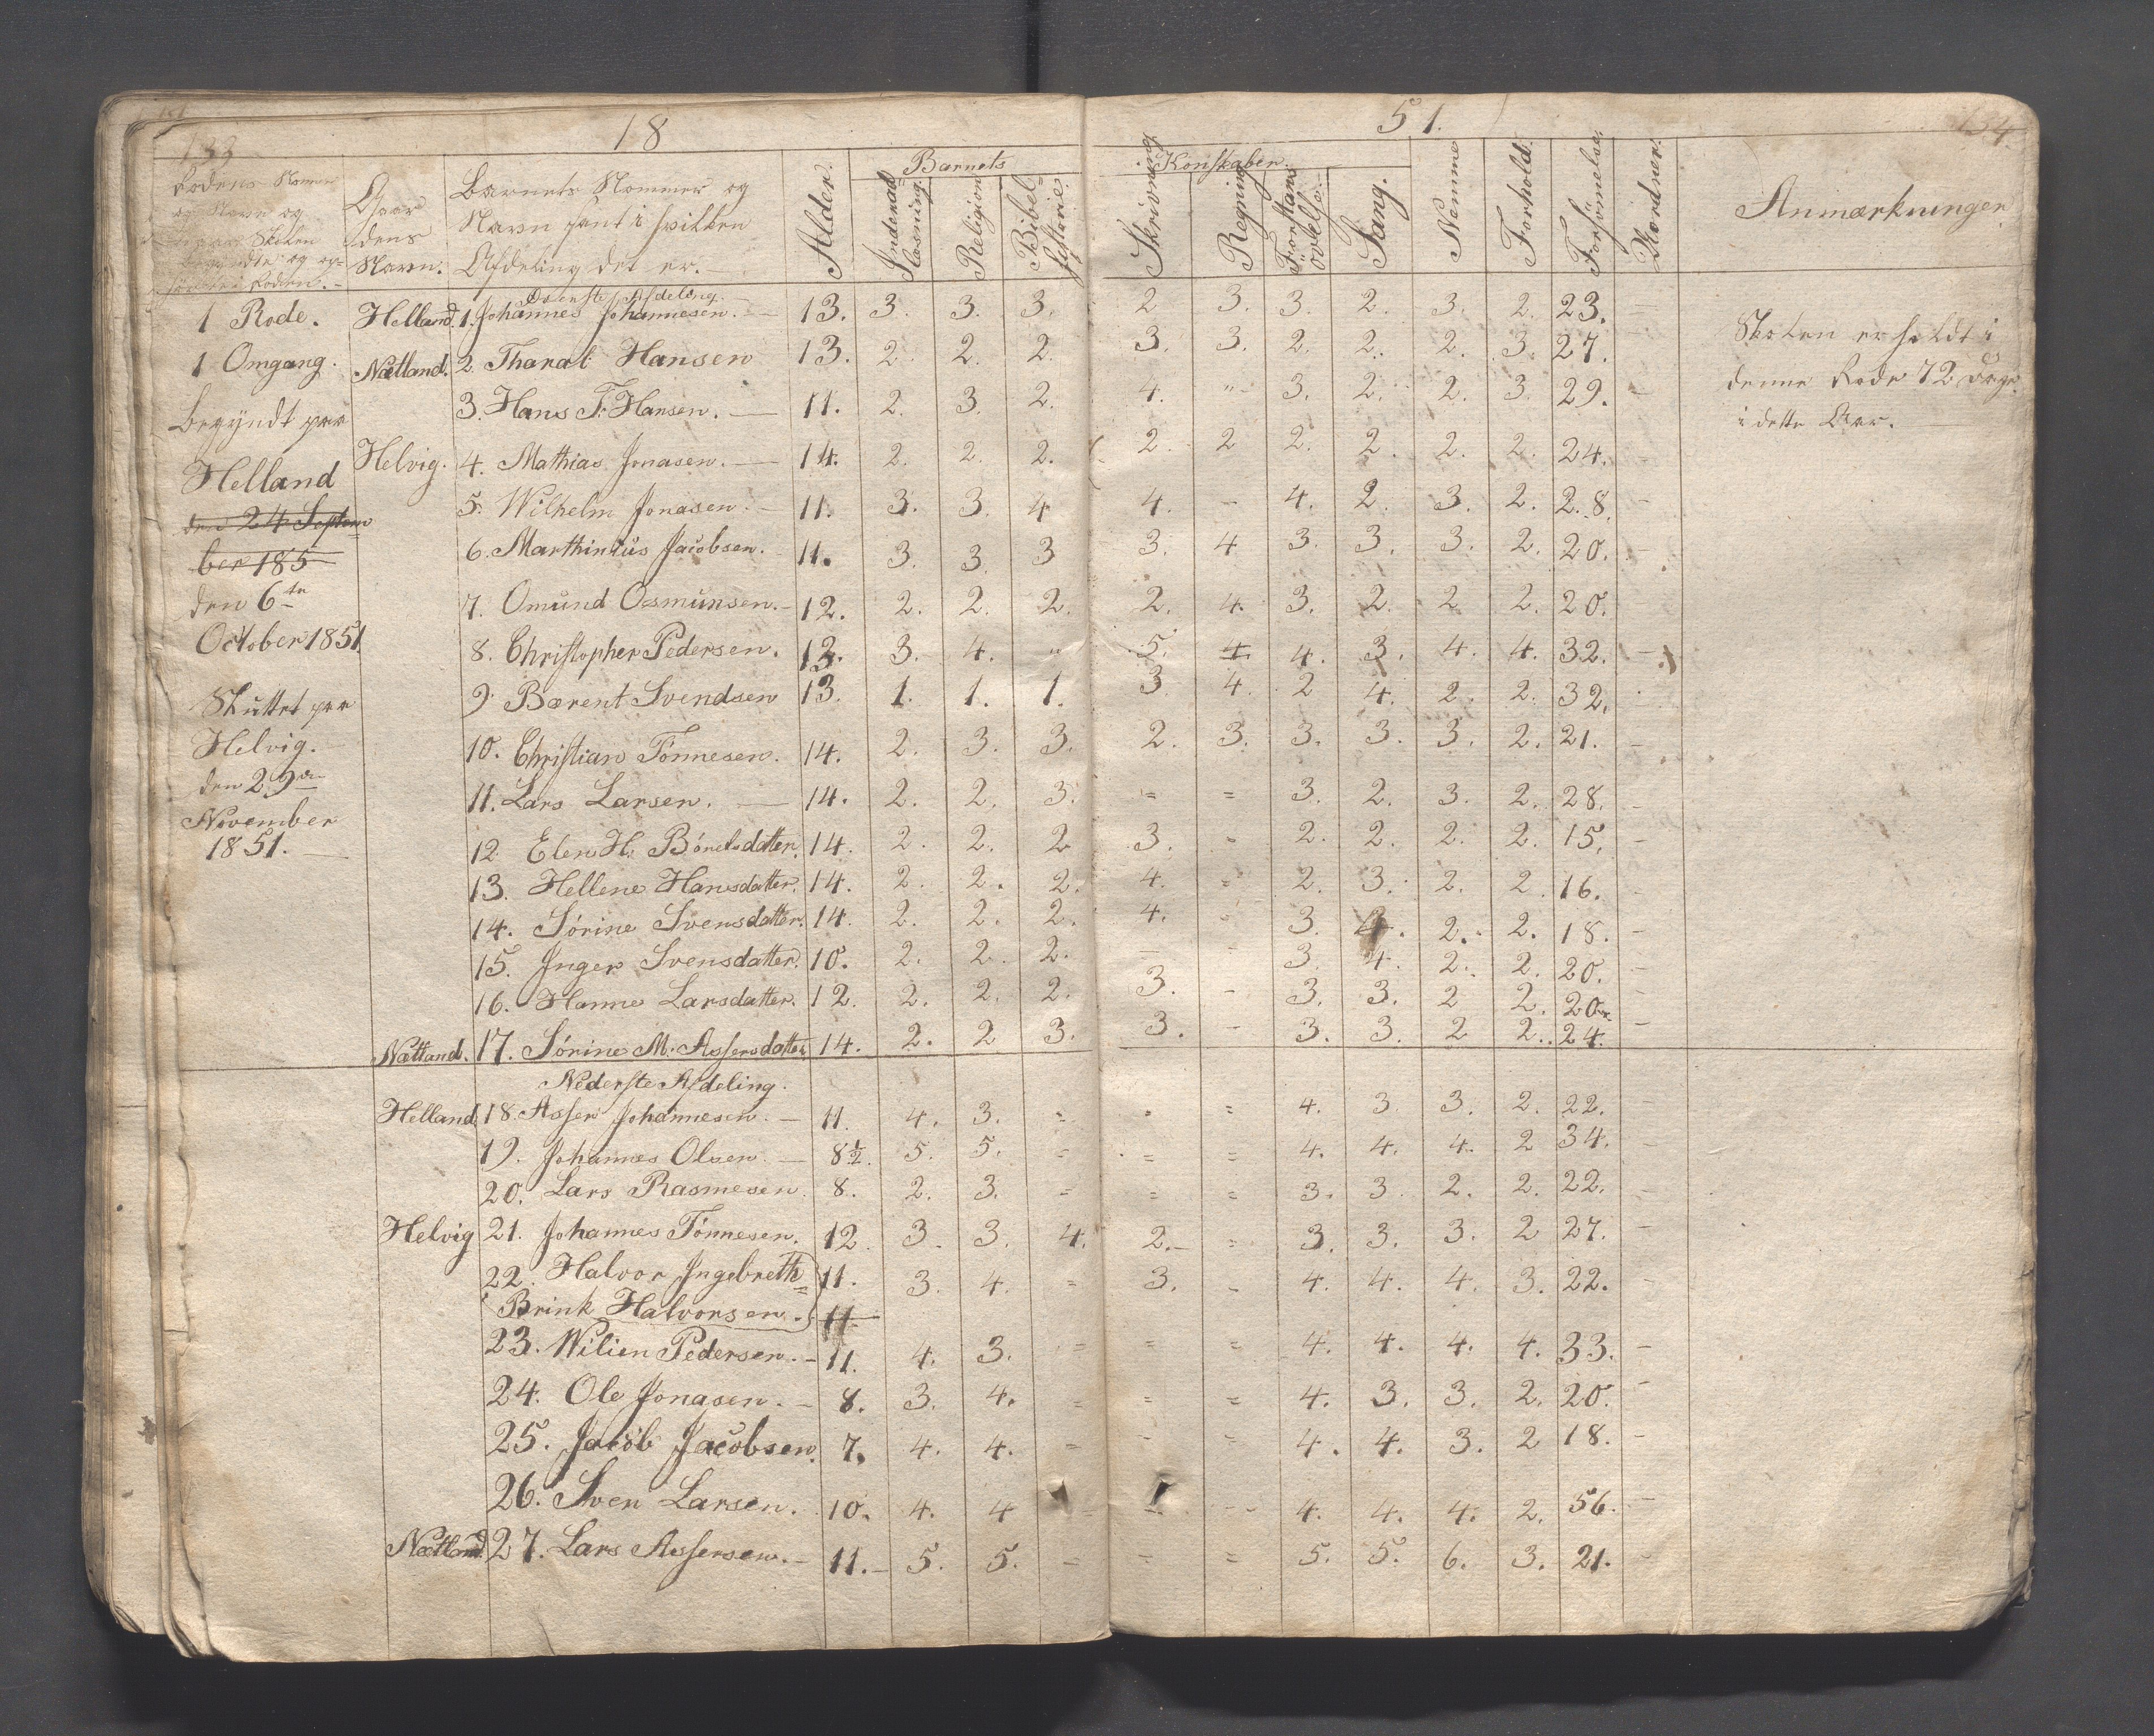 133 18 51. 134.
Rodens Nomer og Navn og Gaardens Navn. Barnets Nommer og Navn samt i hvilken Afdeling det er. Alder. Barnets Kundskaber. Nemme Forhold. Forsömmelse. Anmærkninger
Indenadlæsning. Religion Bibelhistorie. Skrivning Regning Forstandsövelse. Sang.
Överste Afdeling.
1 Rode. Helland. 1. Johannes Johannesen. — 13. 3. 3. 3. 2 3. 3. 2. 3. 2. 23. —
1 Omgang. Nætland. 2. Tharal Hansen 13. 2. 2. 2. 3. 3. 2. 2. 2. 3. 27.
3. Hans T. Hansen. — 11. 2. 3. 2. 4. " 3. 2. 2. 3. 29. —
Begyndt paa Helvig. 4. Mathias Jonasen. — 14. 2. 2. 2. 2. 2 2. 2. 2. 2. 24. —
Helland 5. Wilhelm Jonasen. - 11. 3. 3. 4 4. - 4. 2. 3. 2. 28. —
den 24 Septem= 6. Marthinius Jacobsen. 11. 3. 3. 3 3. 4 3. 3. 3. 2. 20. —
ber 185
den 6te 7. Omund Osmunsen. - 12. 2. 2. 2. 2. 4. 3. 2. 2 2. 20.
October 1851. 8. Christopher Pedersen. 13. 3. 4. " 5. 4. 4. 3. 4. 4. 32. —
Sluttet paa 9. Bærent Svendsen 13. 1. 1. 1. 3. 4. 2 4. 2. 2. 32.
Helvig. 10. Christian Tönnesen. 14. 2. 3. 3. 2. 3. 3. 3. 3. 2. 21. —
den 29de 11. Lars Larsen. — 14. 2. 2. 3. = = 3. 2. 3. 2. 28. —
November 12 Elen H. Börelsdatter. 14. 2. 2. 2 3. - 2. 2. 2. 2. 15. —
1851. —
13. Hellene Hansdatter. 14. 2. 2. 2. 4. = 2. 3. 2. 2. 16.
14. Sörine Svensdatter. 14. 2. 2. 2. 4. - 3. 4. 2. 2. 18. —
15. Inger Svensdatter. 10. 2. 2. 2. — - 3. 4. 2. 2. 20. —
16. Hanne Larsdatter. 12. 2. 2. 2. 3. - 3. 3. 2 2. 20. —
Nætland. 17. Sörine M. Assersdatter. 14. 2. 2 3. 3. - 3. 3. 2 2. 24. —
Nederste Afdeling.
Helland 18. Asser Johannesen. — 11. 4. 3. = = = 4. 3 3. 2. 22. —
19. Johannes Olsen — 8½. 5. 5. = = = 4. 4. 4. 2 34. —
20. Lars Rasmesen. 8. 2. 3. = = = 3. 3. 2. 2. 22. —
Helvig 21. Johannes Tönnesen. 12. 3. 3. 4. 2. = 3. 3. 3. 2 27. —
22. Halvor Ingebreth= 11. 3. 4. = 3. - 4. 4. 4. 3. 22. —
Brink Halvorsen. 11
23. Wilien Pedersen. - 11. 4. 3. = = = 4. 4. 4. 4. 33. —
24. Ole Jonasen. - 8. 3. 4. = = = 4. 3. 3. 2. 20. —
25. Jacob Jacobsen. 7. 4. 4. = - - 4. 4. 3. 2 18. —
26. Sven Larsen. 10. 4. 4 = = - 4. 4. 4. 2. 56. —
Nætland. 27. Lars Assersen. - 11. - 5. 5. = = = 5. 5. 6. 3. 21. -
Skolen er holdt i
denne Rode 72 Dage
i dette Aar. —